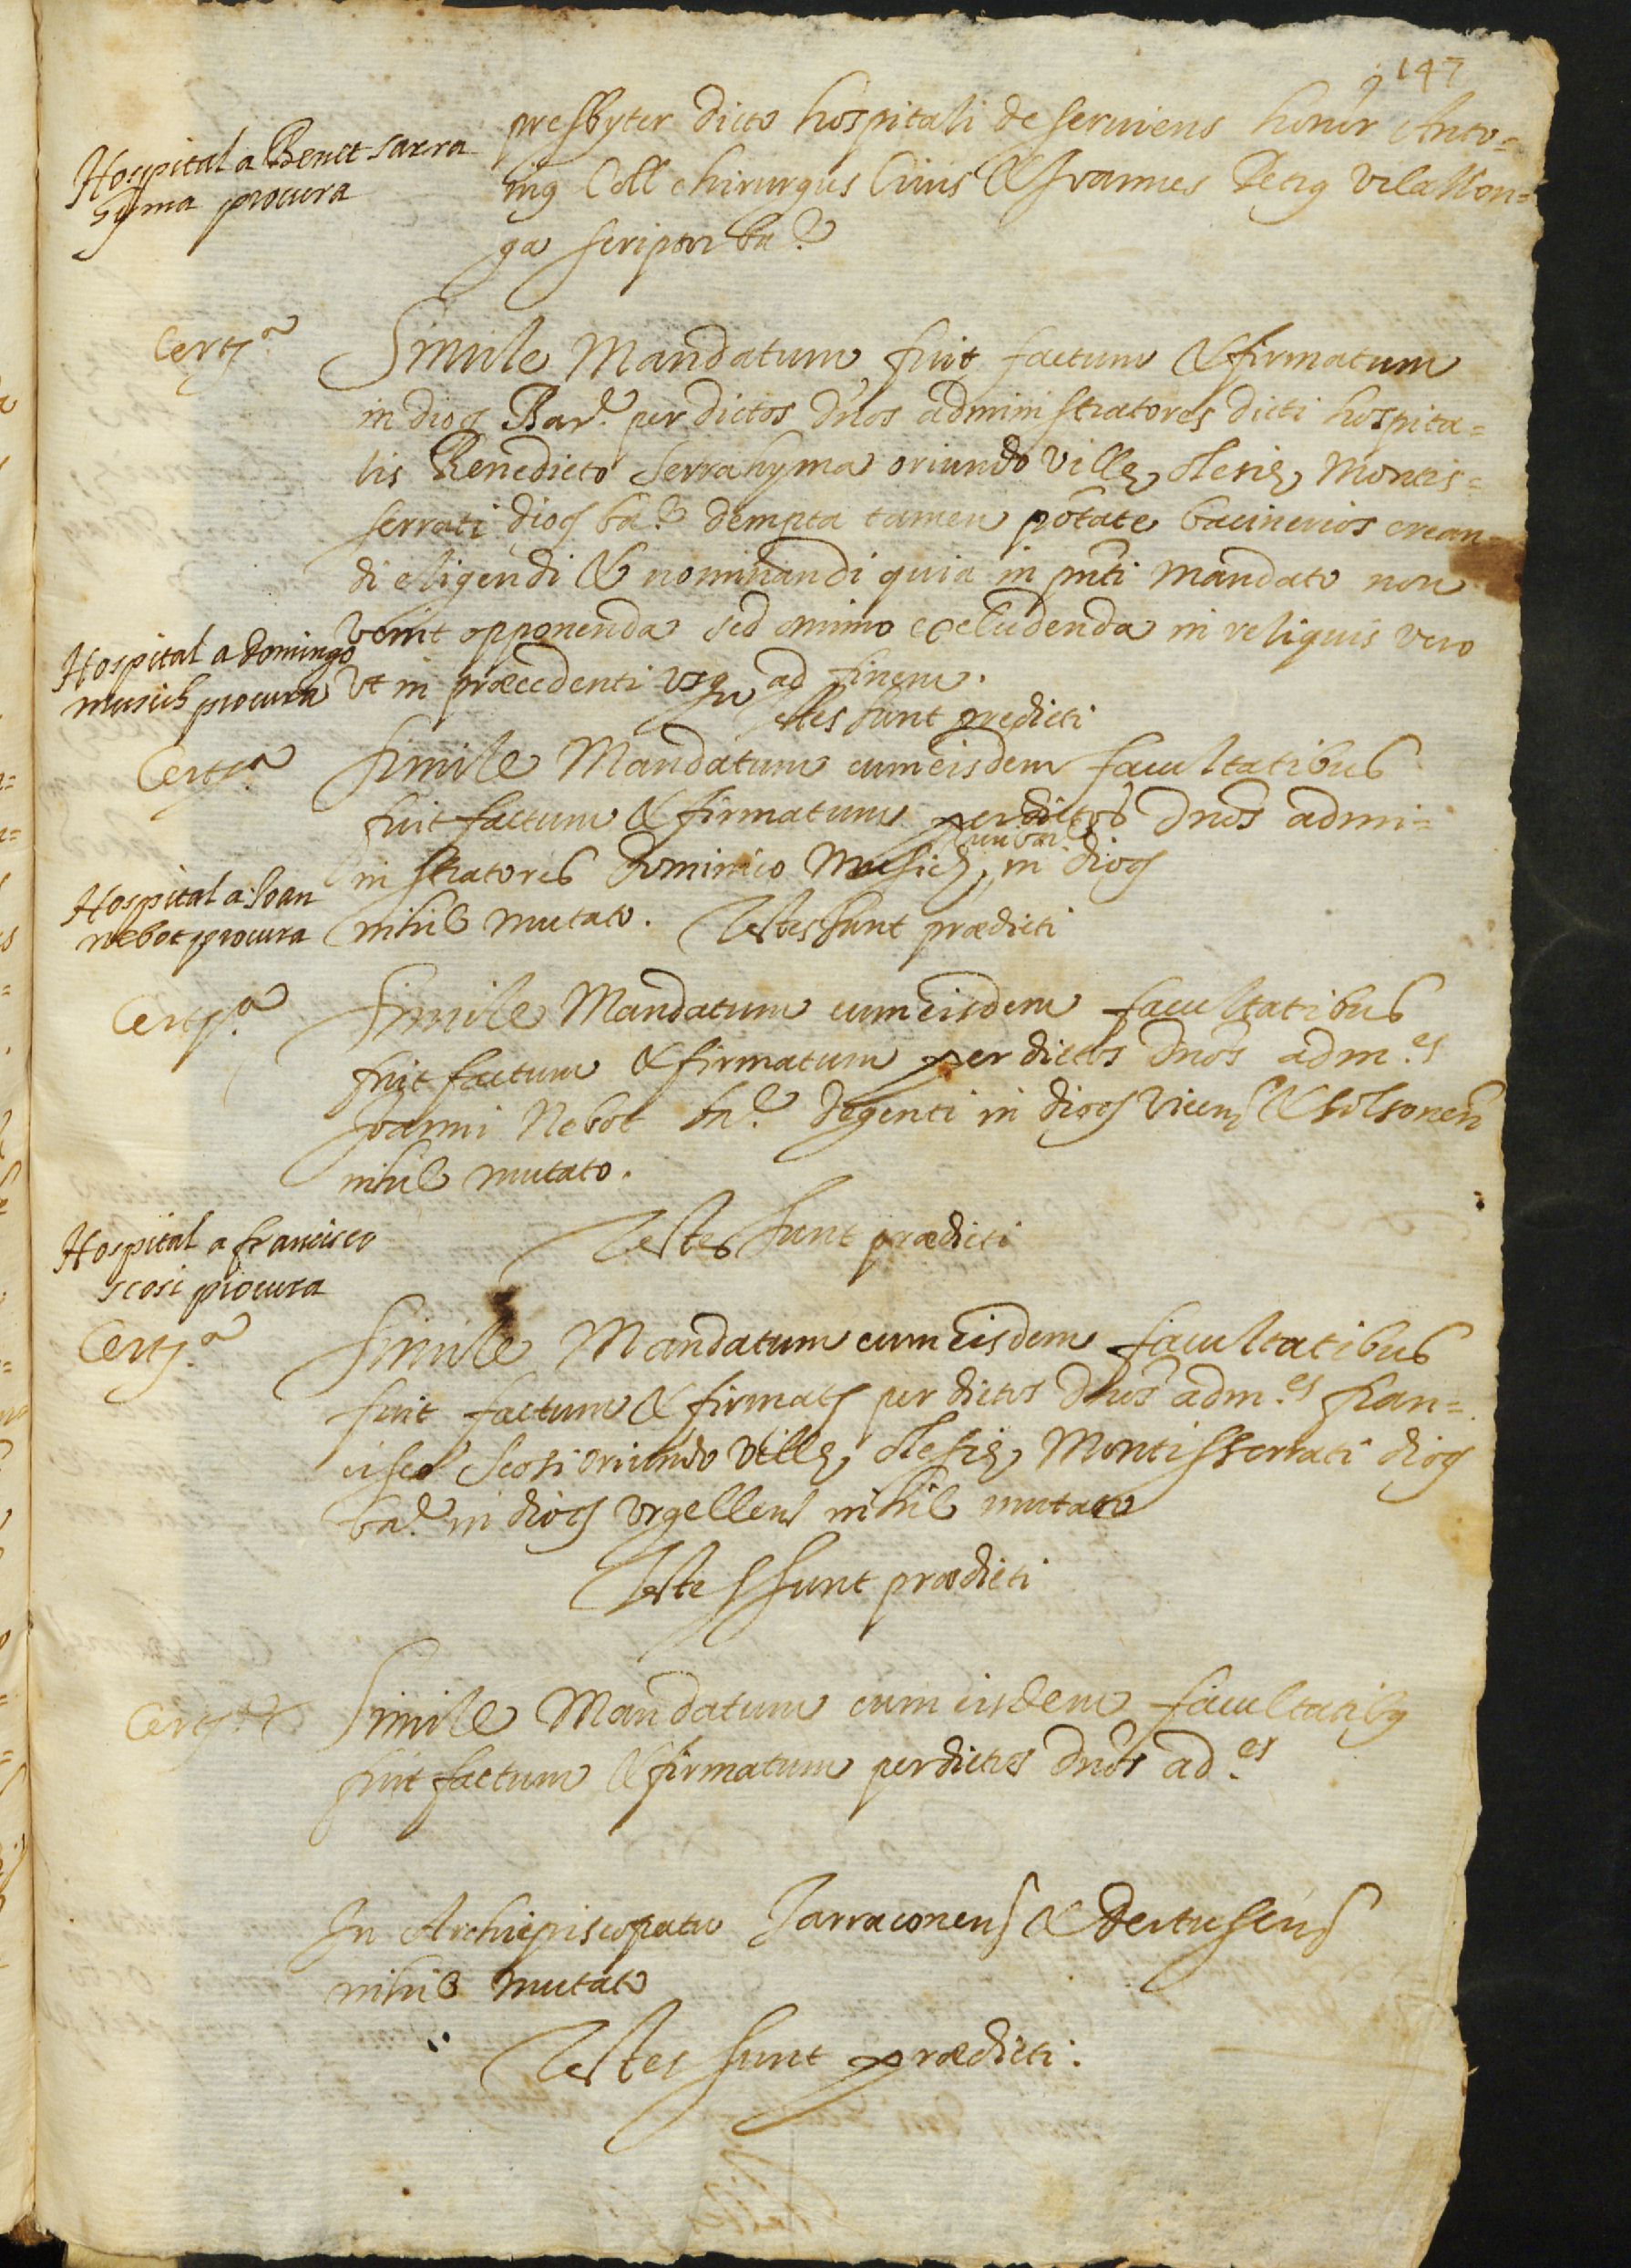 147
presbyter dicto hospitali deserviens honor Anto=
Hospital a Benet sarra
hyma procura
nius Coll chirurgus Civis & Ioannes Petrus Vilallon=
ga scriptor ba.
Certa.
Simile Mandatum fuit factum & firmatum
in dioc Bar. per dictos dnos administratores dicti hospita=
lis Benedicto Serrahyma oriundo Ville olesie Montis=
serrati dioc ba. dempta tamen potate bacinerios crean=
di eligendi & nominandi quia in pnti mandato non
venit opponenda sed omnino excludenda in reliquis vero
Hospital a domingo
musich procura
Ut in præcedenti usq ad finem.
testes sunt predicti
Certa.
Simile Mandatum cum eisdem facultatibus
fuit factum & firmatum per dictos dnos admi=
nistratores dominico Musich, in dioc
Hospital a Joan
nebot procura
nihil mutato. Testes sunt prædicti
Certa.
Simile Mandatum cum eisdem facultatibus
fuit factum & firmatum per dictos dnos adm.es
Joanni Nebot ba. degenti in dioc Vicen & Solsonen
nihil mutato.
Testes sunt prædicti
Hospital a francisco
scosi procura
Certa.
Simile Mandatum cum eisdem facultatibus
fuit factum & firmat per dictos dnos adm.es Fran=
cisco Scosi oriundo Ville olesie Montisserrati dioc
ba. in dioc Urgellen nihil mutato
Testes sunt prædicti
Certa.
Simile Mandatum cum eisdem facultatibus
fuit factum & firmatum per dictos dnos ad.es
In Archiepiscopatu Tarraconens & Dertusens
nihil mutato
Testes sunt prædicti.